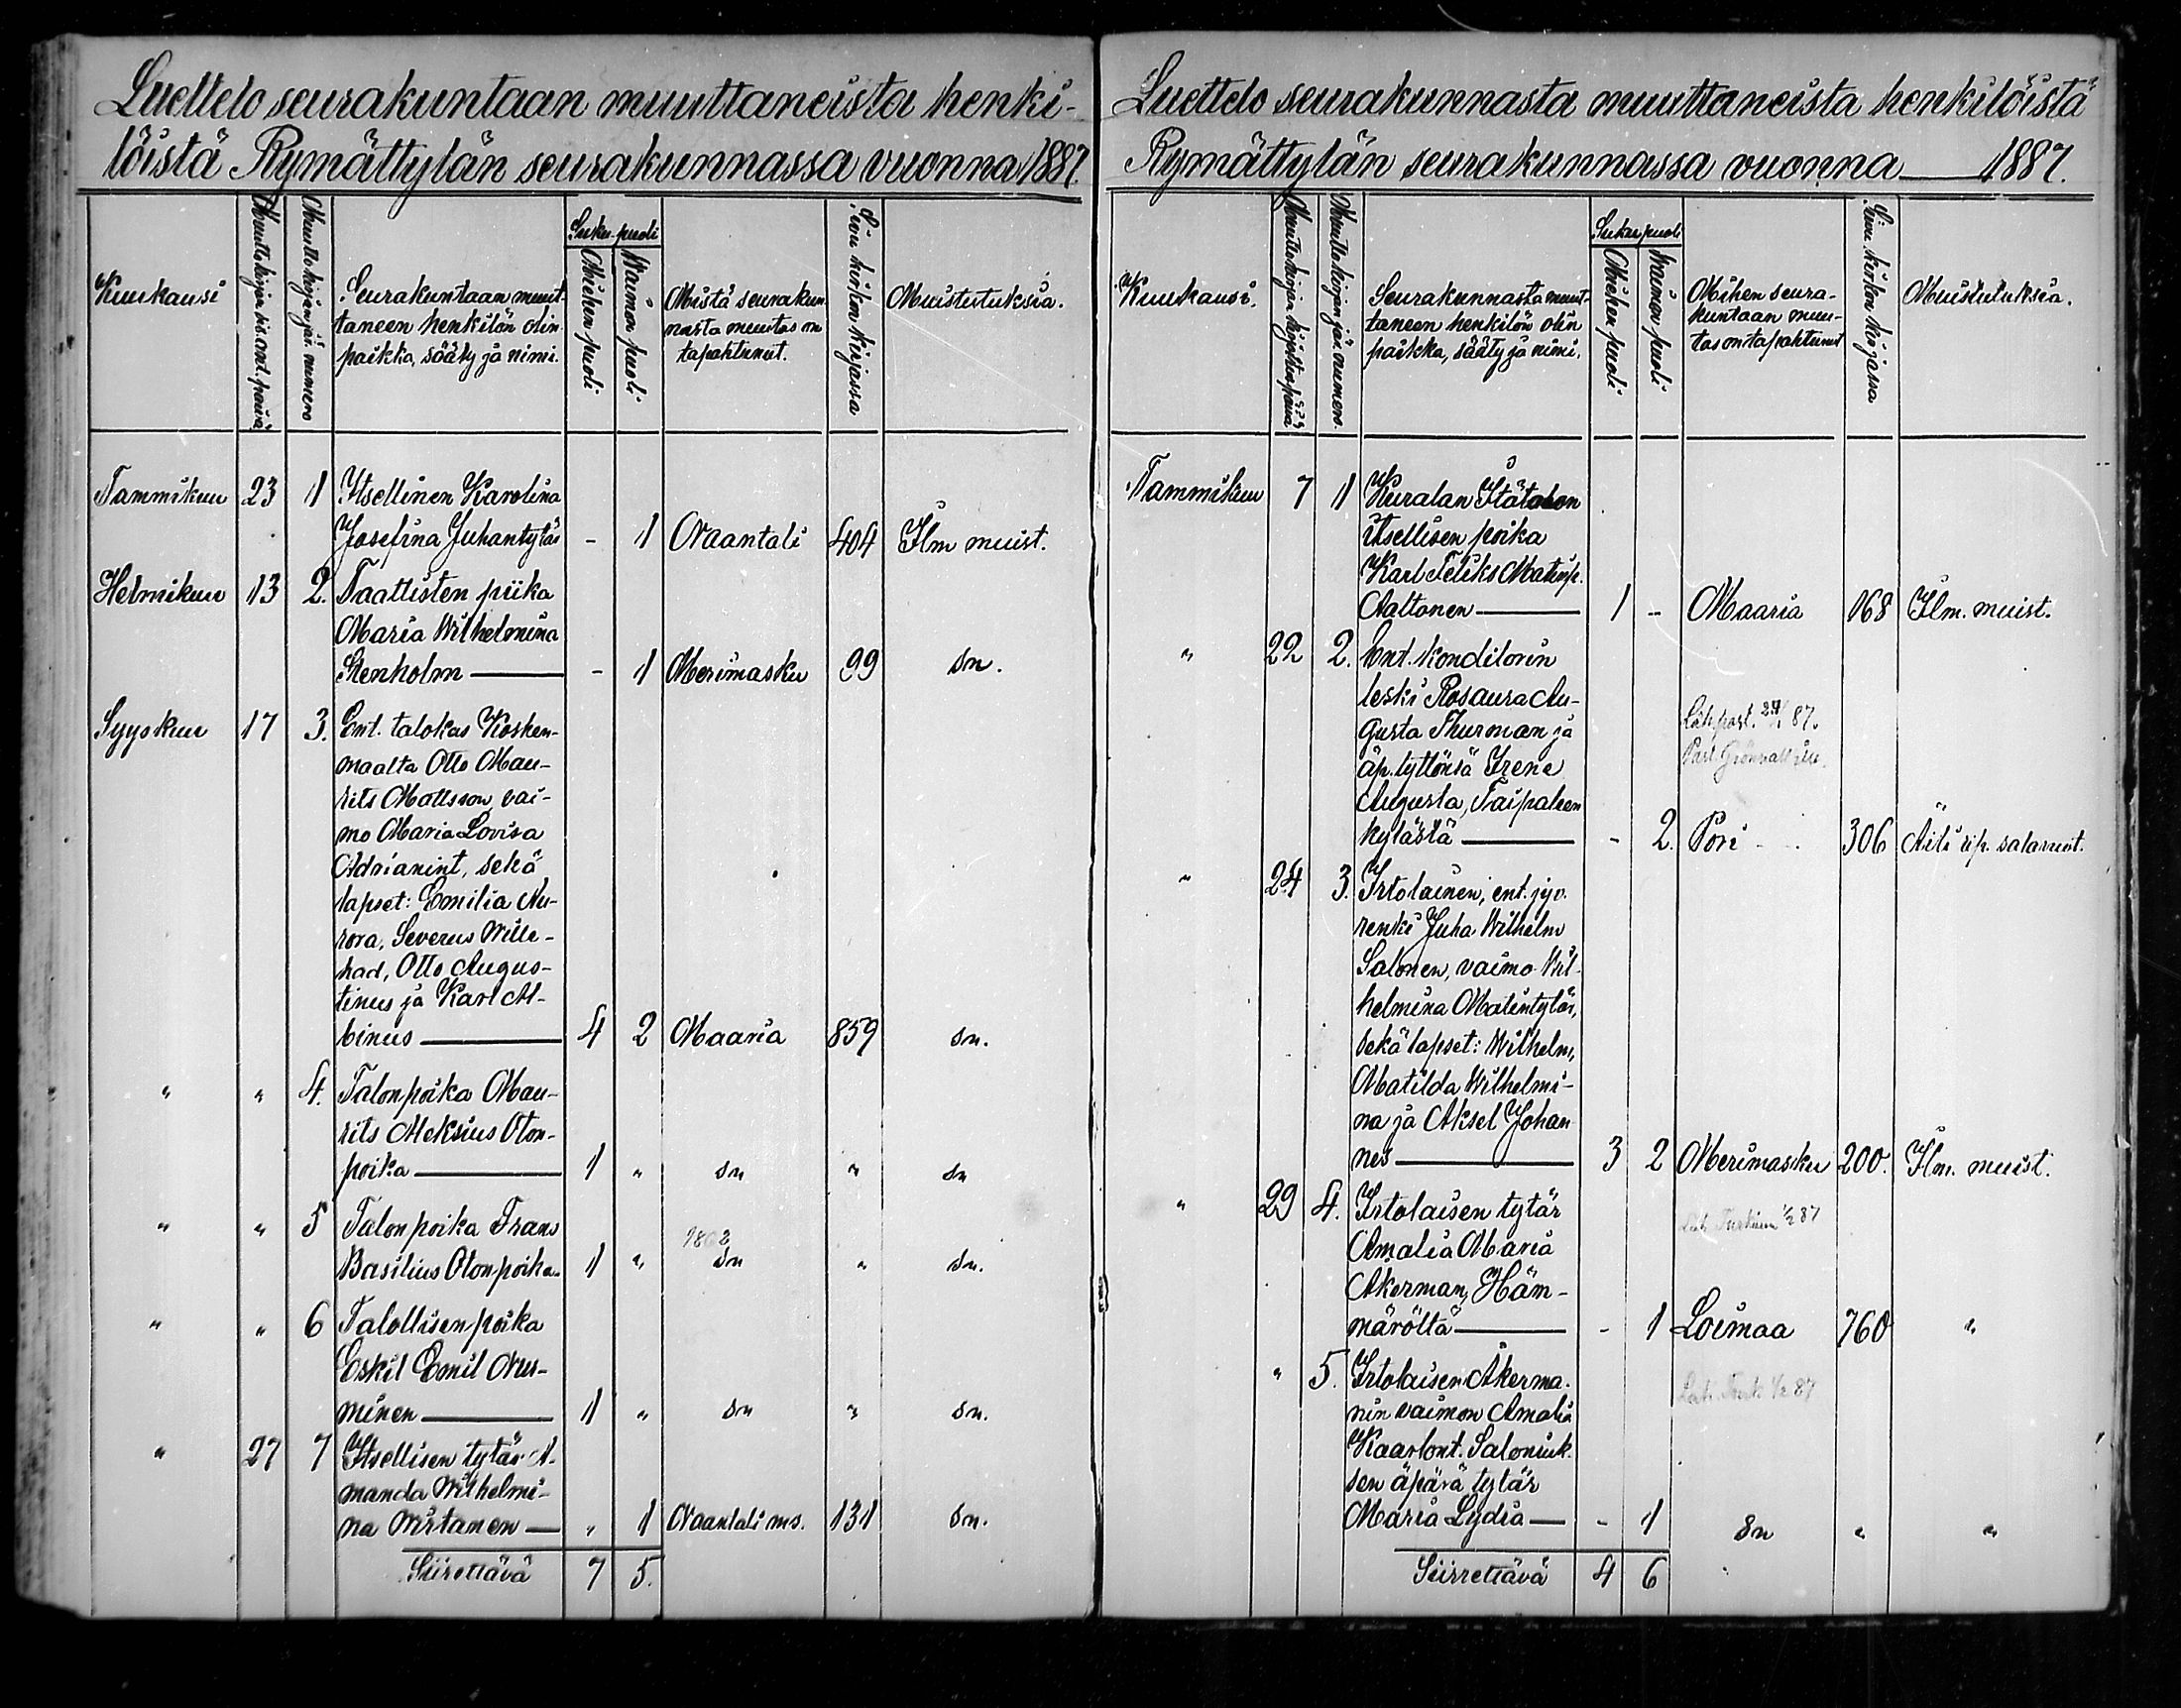 Luettelo seurakuntaan muuttaneista henki-
löistä Rymättylän seurakunnassa vuonna 1887.
Kuukausi
Muuttokirjan jär. numero
Seurakuntaan muut-
taneen henkilön olin
paikka, sääty ja nimi.
Suku-puoli
Miehen puoli
Waimon puoli
Mistä seurakun
nasta muutos on
tapahtunut.
Sivu kirkon kirjassa
Muistutuksia.
Tammikuu 23 1 Itsellinen Karolina
Josefina Juhantytär - 1 Naantali 404 Ilm muist.
Helmikuu 13 2. Taattisten piika
Maria Wilhelmina
Stenholm - 1 Merimasku 99 sn.
Syyskuu 17 3. Ent. talokas Kosken-
maalta Otto Mau-
rits Mattsson, vai-
mo Maria Lovisa
Adrianint, sekä
lapset: Emilia Au-
rora, Severus Wille-
had, Otto Augus-
tinus ja Karl Al-
binus 4 2 Maaria 859 sn.
" " 4. Talonpoika Mau-
rits Aleksius Oton-
poika 1 " sn " sn
" " 5 Talonpoika Frans
Basilius Otonpoika 1 " sn " sn.
" " 6 Talollisen poika
Eskil Emil Nur-
minen 1 " sn " sn.
" 27 7 Itsellisen tytär A-
manda Wilhelmi-
na Wirtanen " 1 Naantali ms. 131 sn.
Siirettävä 7 5.
Luettelo seurakunnasta muuttaneista henkilöistä
Rymättylän seurakunnassa vuonna 1887.
Kuukausi.
Muuttokirjan jär. numero.
Seurakunnasta muut-
taneen henkilön olin
paikka, sääty ja nimi.
Sukupuoli
Miehen puoli
Waimon puoli
Mihen seura-
kuntaan muu-
tos on tapahtunut
Sivu kirkon kirjassa
Muistutuksia.
Tammikuu 7 1 Kuralan Itätalon
itsellisen poika
Karl Feliks Matinp.
Aaltonen 1 - Maaria 168 Ilm. muist.
" 22 2. Ent. konditorin
leski Rosaura Au-
gusta Thurman ja
äp. tyttönsä Irene
Augusta, Taipaleen
kylästä - 2. Pori 306 Äiti rip. salamuist.
" 24 3. Irtolainen, ent. jyv.
renki Juha Wilhelm
Salonen, vaimo Wil-
helmina Matintytär,
sekä lapset: Wilhelm,
Matilda Wilhelmi-
na ja Aksel Johan
nes 3 2 Merimasku 200. Ilm. muist.
" 29 4. Irtolaisen tytär
Amalia Maria
Åkerman, Häm-
märöltä - 1 Loimaa 760 "
" 5. Irtolaisen Åkerma-
nin vaimon Amalia
Kaarlont. Saloniuk-
sen äpärä tytär
Maria Lydia - 1 sn " "
Siirrettävä 4 6